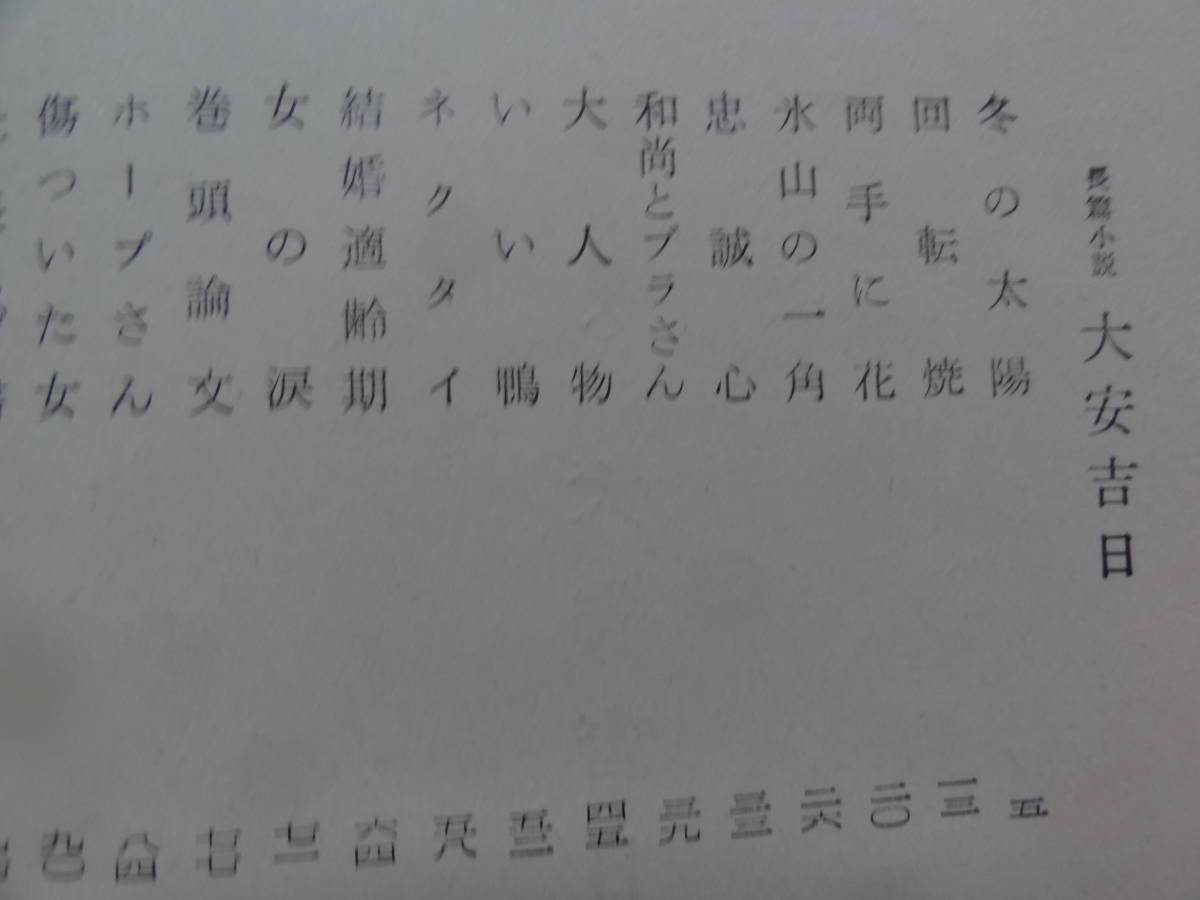 長篇小説 大安吉日
冬の太陽 五
回転焼 一三
両手に花 二〇
氷山の一角 二六
忠誠心 三三
和尚とブラさん 三九
大人物 四五
いい鴨 五二
ネクタイ 五八
結婚適齢期 六四
女の涙 七一
巻頭論文 七七
ホープさん 八四
傷ついた女 九〇